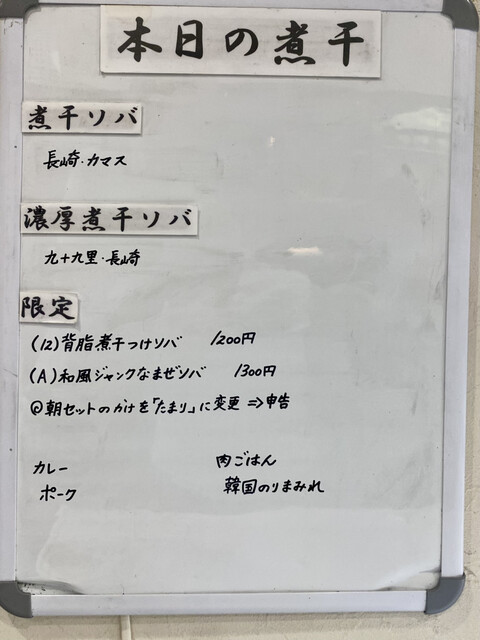 本日の煮干
煮干ソバ
長崎・カマス
濃厚煮干ソバ
九十九里・長崎
限定
(12)背脂煮干つけソバ 1200円
(A)和風ジャンクなまぜソバ 1300円
@朝セットのかけを「たまり」に変更 ⇒申告
カレー 肉ごはん
ポーク 韓国のりまみれ